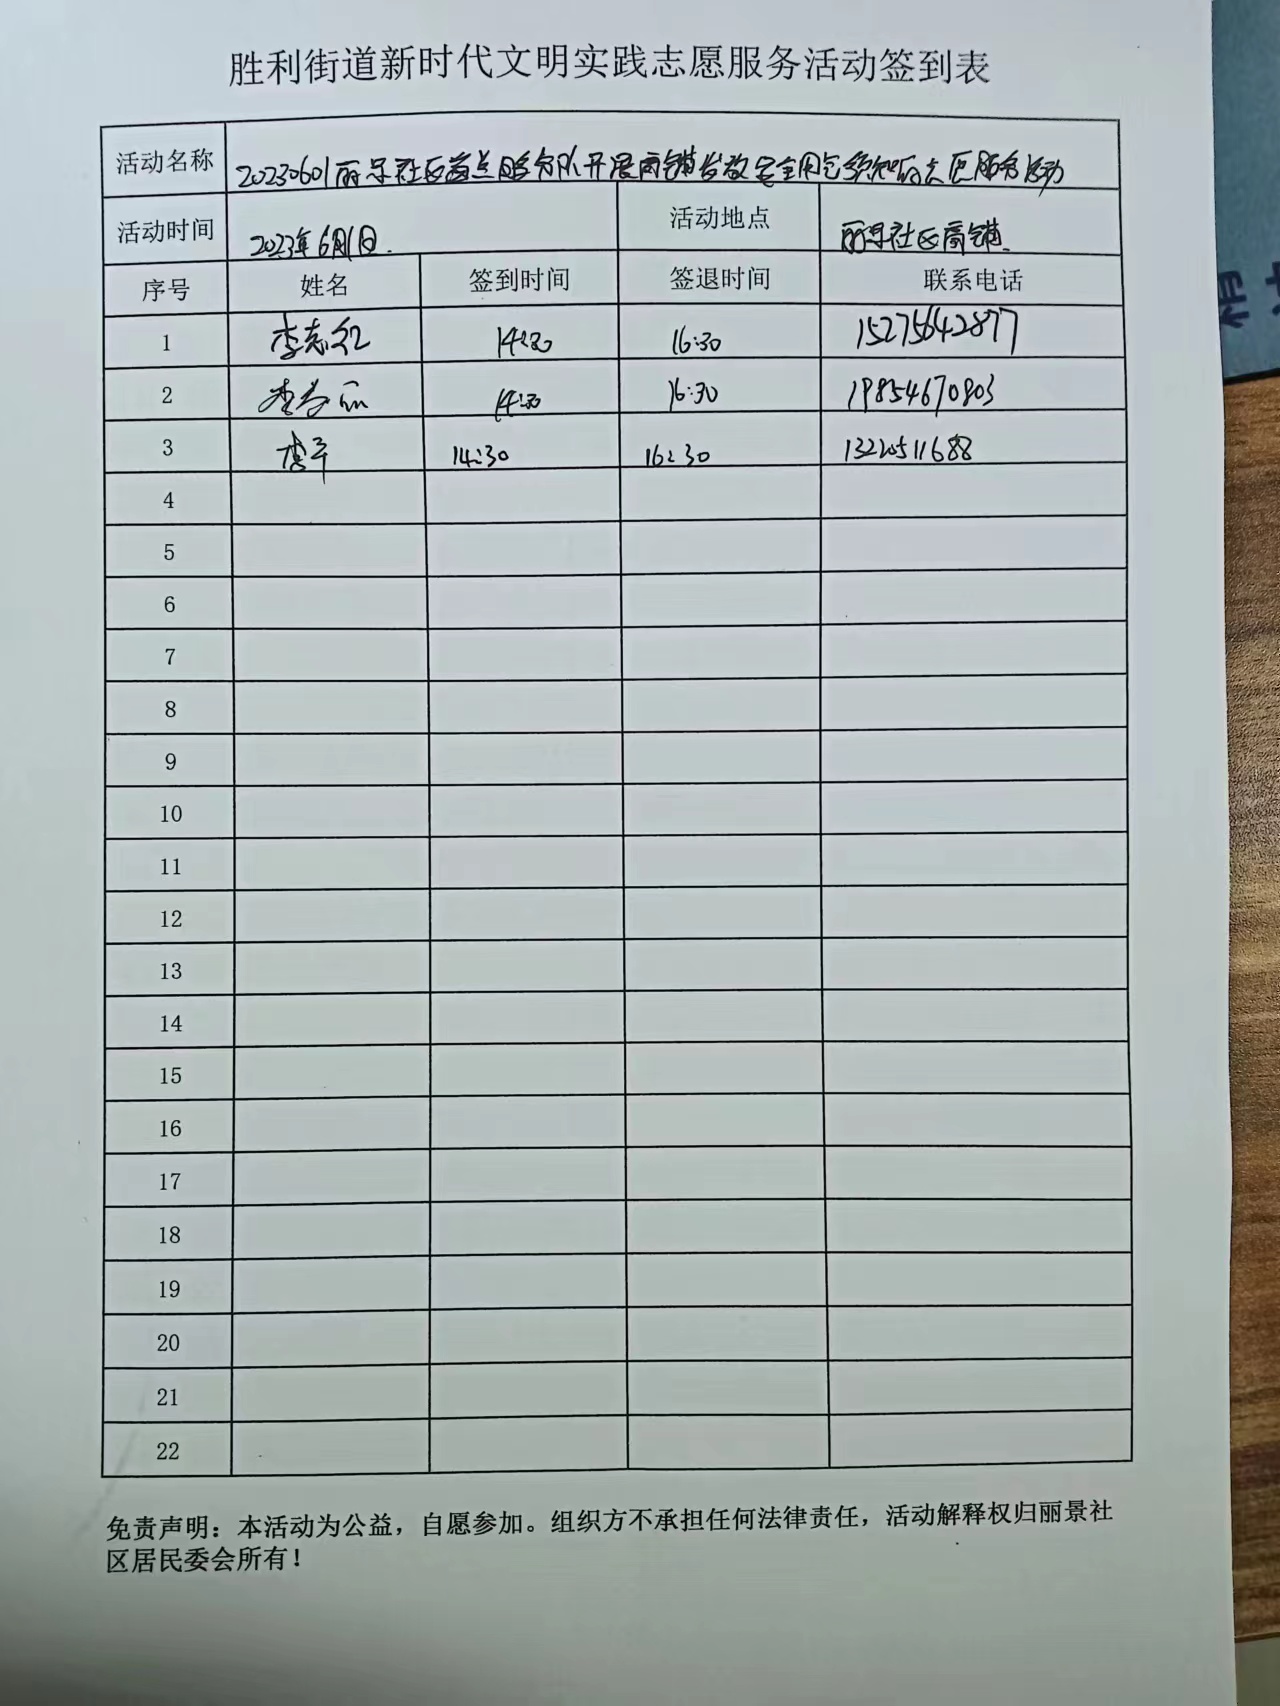 胜利街道新时代文明实践志愿服务活动签到表
活动名称 20230601丽景社区 服务队开展商铺发放安全用电须知的志愿服务活动
活动时间 2023年6月1日. 活动地点 丽景社区商铺.
序号 姓名 签到时间 签退时间 联系电话
1 李志红 14:30 16:30 15275642877
2 李 丽 14:30 16:30 19854670803
3 李平 14:30 16:30 13220511688
4
5
6
7
8
9
10
11
12
13
14
15
16
17
18
19
20
21
22
免责声明：本活动为公益，自愿参加。组织方不承担任何法律责任，活动解释权归丽景社
区居民委会所有！